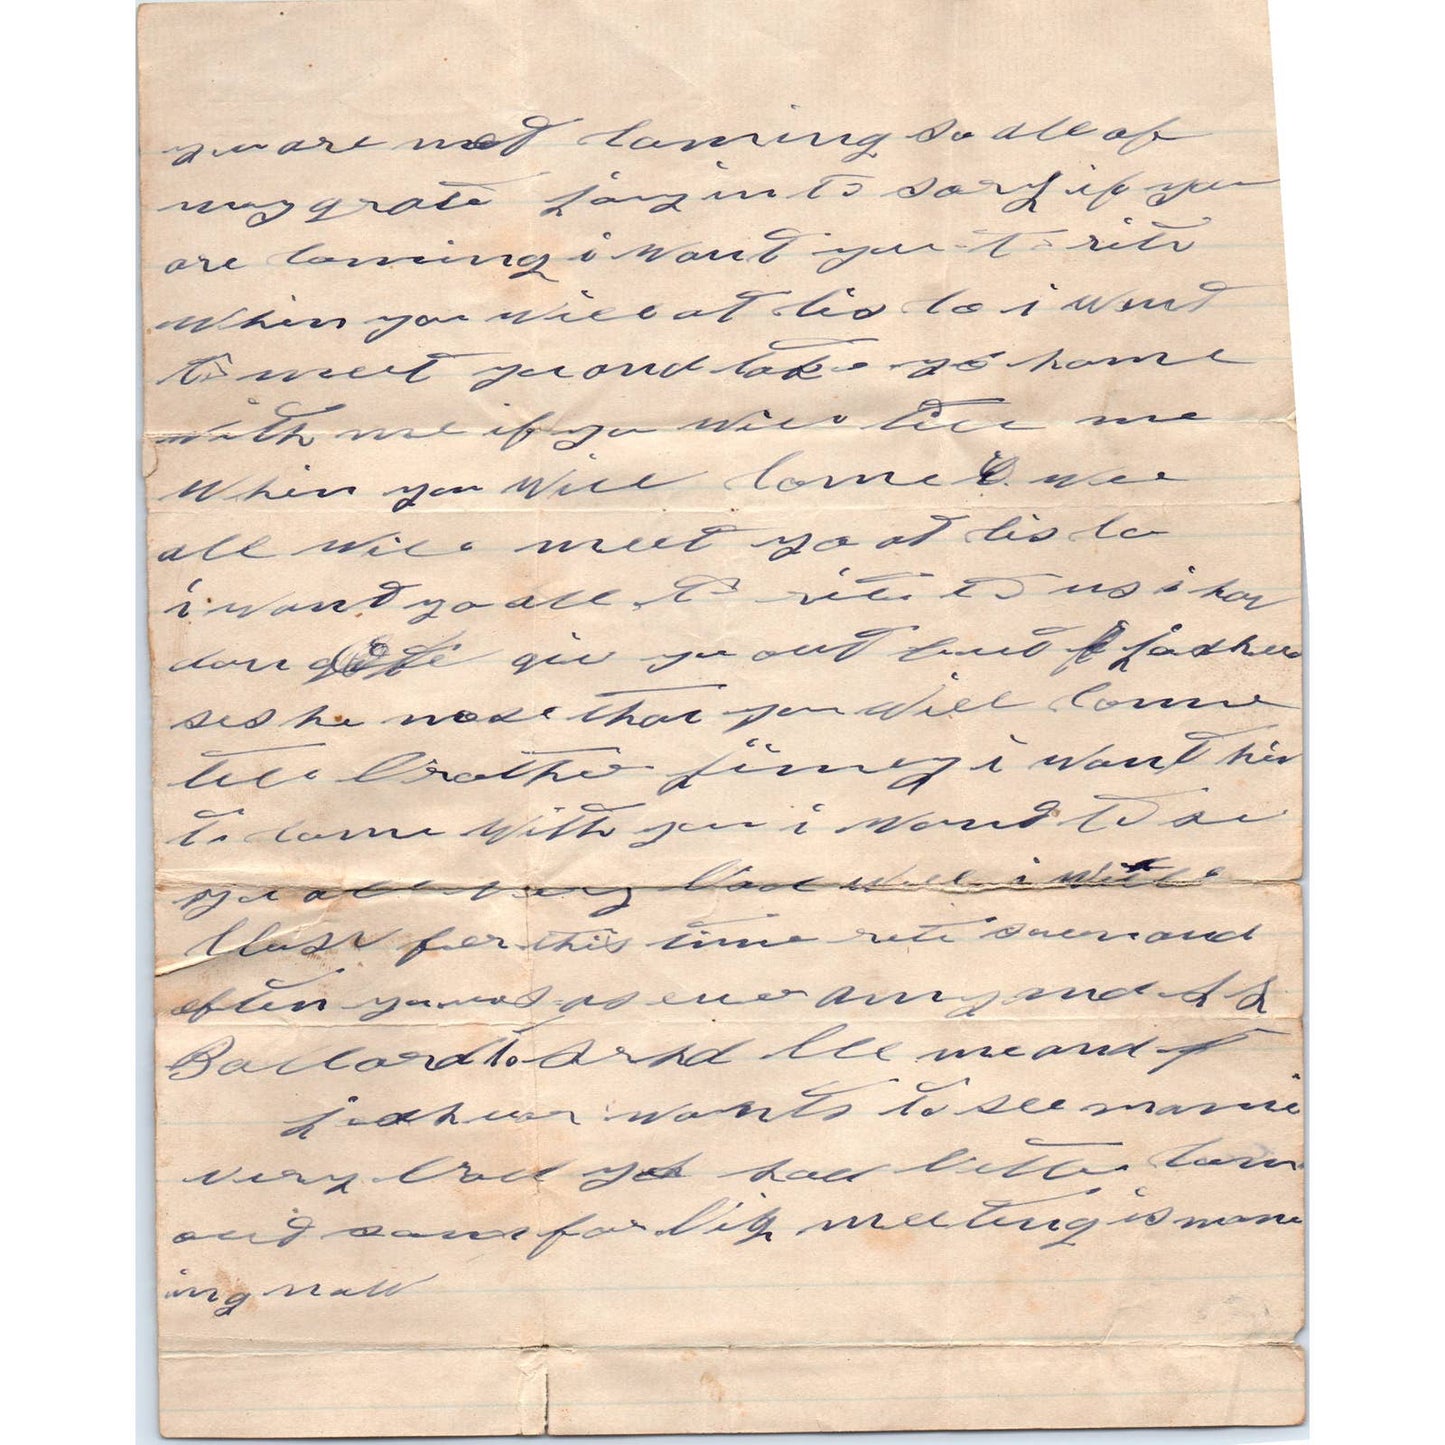 you are not coming so all of
my grate joy in to sory if you
are coming i want you to rite
when you will at lis to i went
to meet you and take yo home
with me if you will tell me
when you will come wee
all will meet yo at lis to
i want yo all to rite to us i hav
don giv you out but
ses he nose that you will come
tell brother jimey i want him
to come with you i want to se
you all very bad well i will
close for this time rite soon and
often yours as ever amy and
Ballard to me and
wants to see mamie
very bad yo had better com
and for big meeting is
ing now